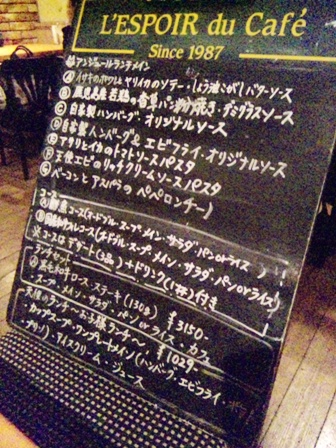 L'ESPOIR du Café
Since 1987
アンジュールランチメイン
Ⓐイサキのポワレとヤリイカのソテー・しょう油こがしバターソース
Ⓑ鹿児島産若鶏の香草パン粉焼き・デミグラスソース
Ⓒ自家製ハンバーグ・オリジナルソース
Ⓓ自家製ハンバーグ&エビフライ・オリジナルソース
Ⓔアサリとイカのトマトソースパスタ
Ⓕ天使エビのリッチクリームソースパスタ
Ⓖベーコンとアスパラのペペロンチーノ
コース
コース(オードブル・スープ・メイン・サラダ・パンorライス)
コース(オードブル・スープ・メイン・サラダ・パンorライス)
※コースはデザート(3品)+ドリンク(1杯)付き
ランチセット
牛ロースステーキ(130g) ¥3150-
スープ・メイン・サラダ・パンorライス・カフェ
天使のランチ〜お子様ランチ〜 ¥1029-
カップスープ・ワンプレートメイン(ハンバーグ・エビフライ・
プリン)・アイスクリーム・ジュース